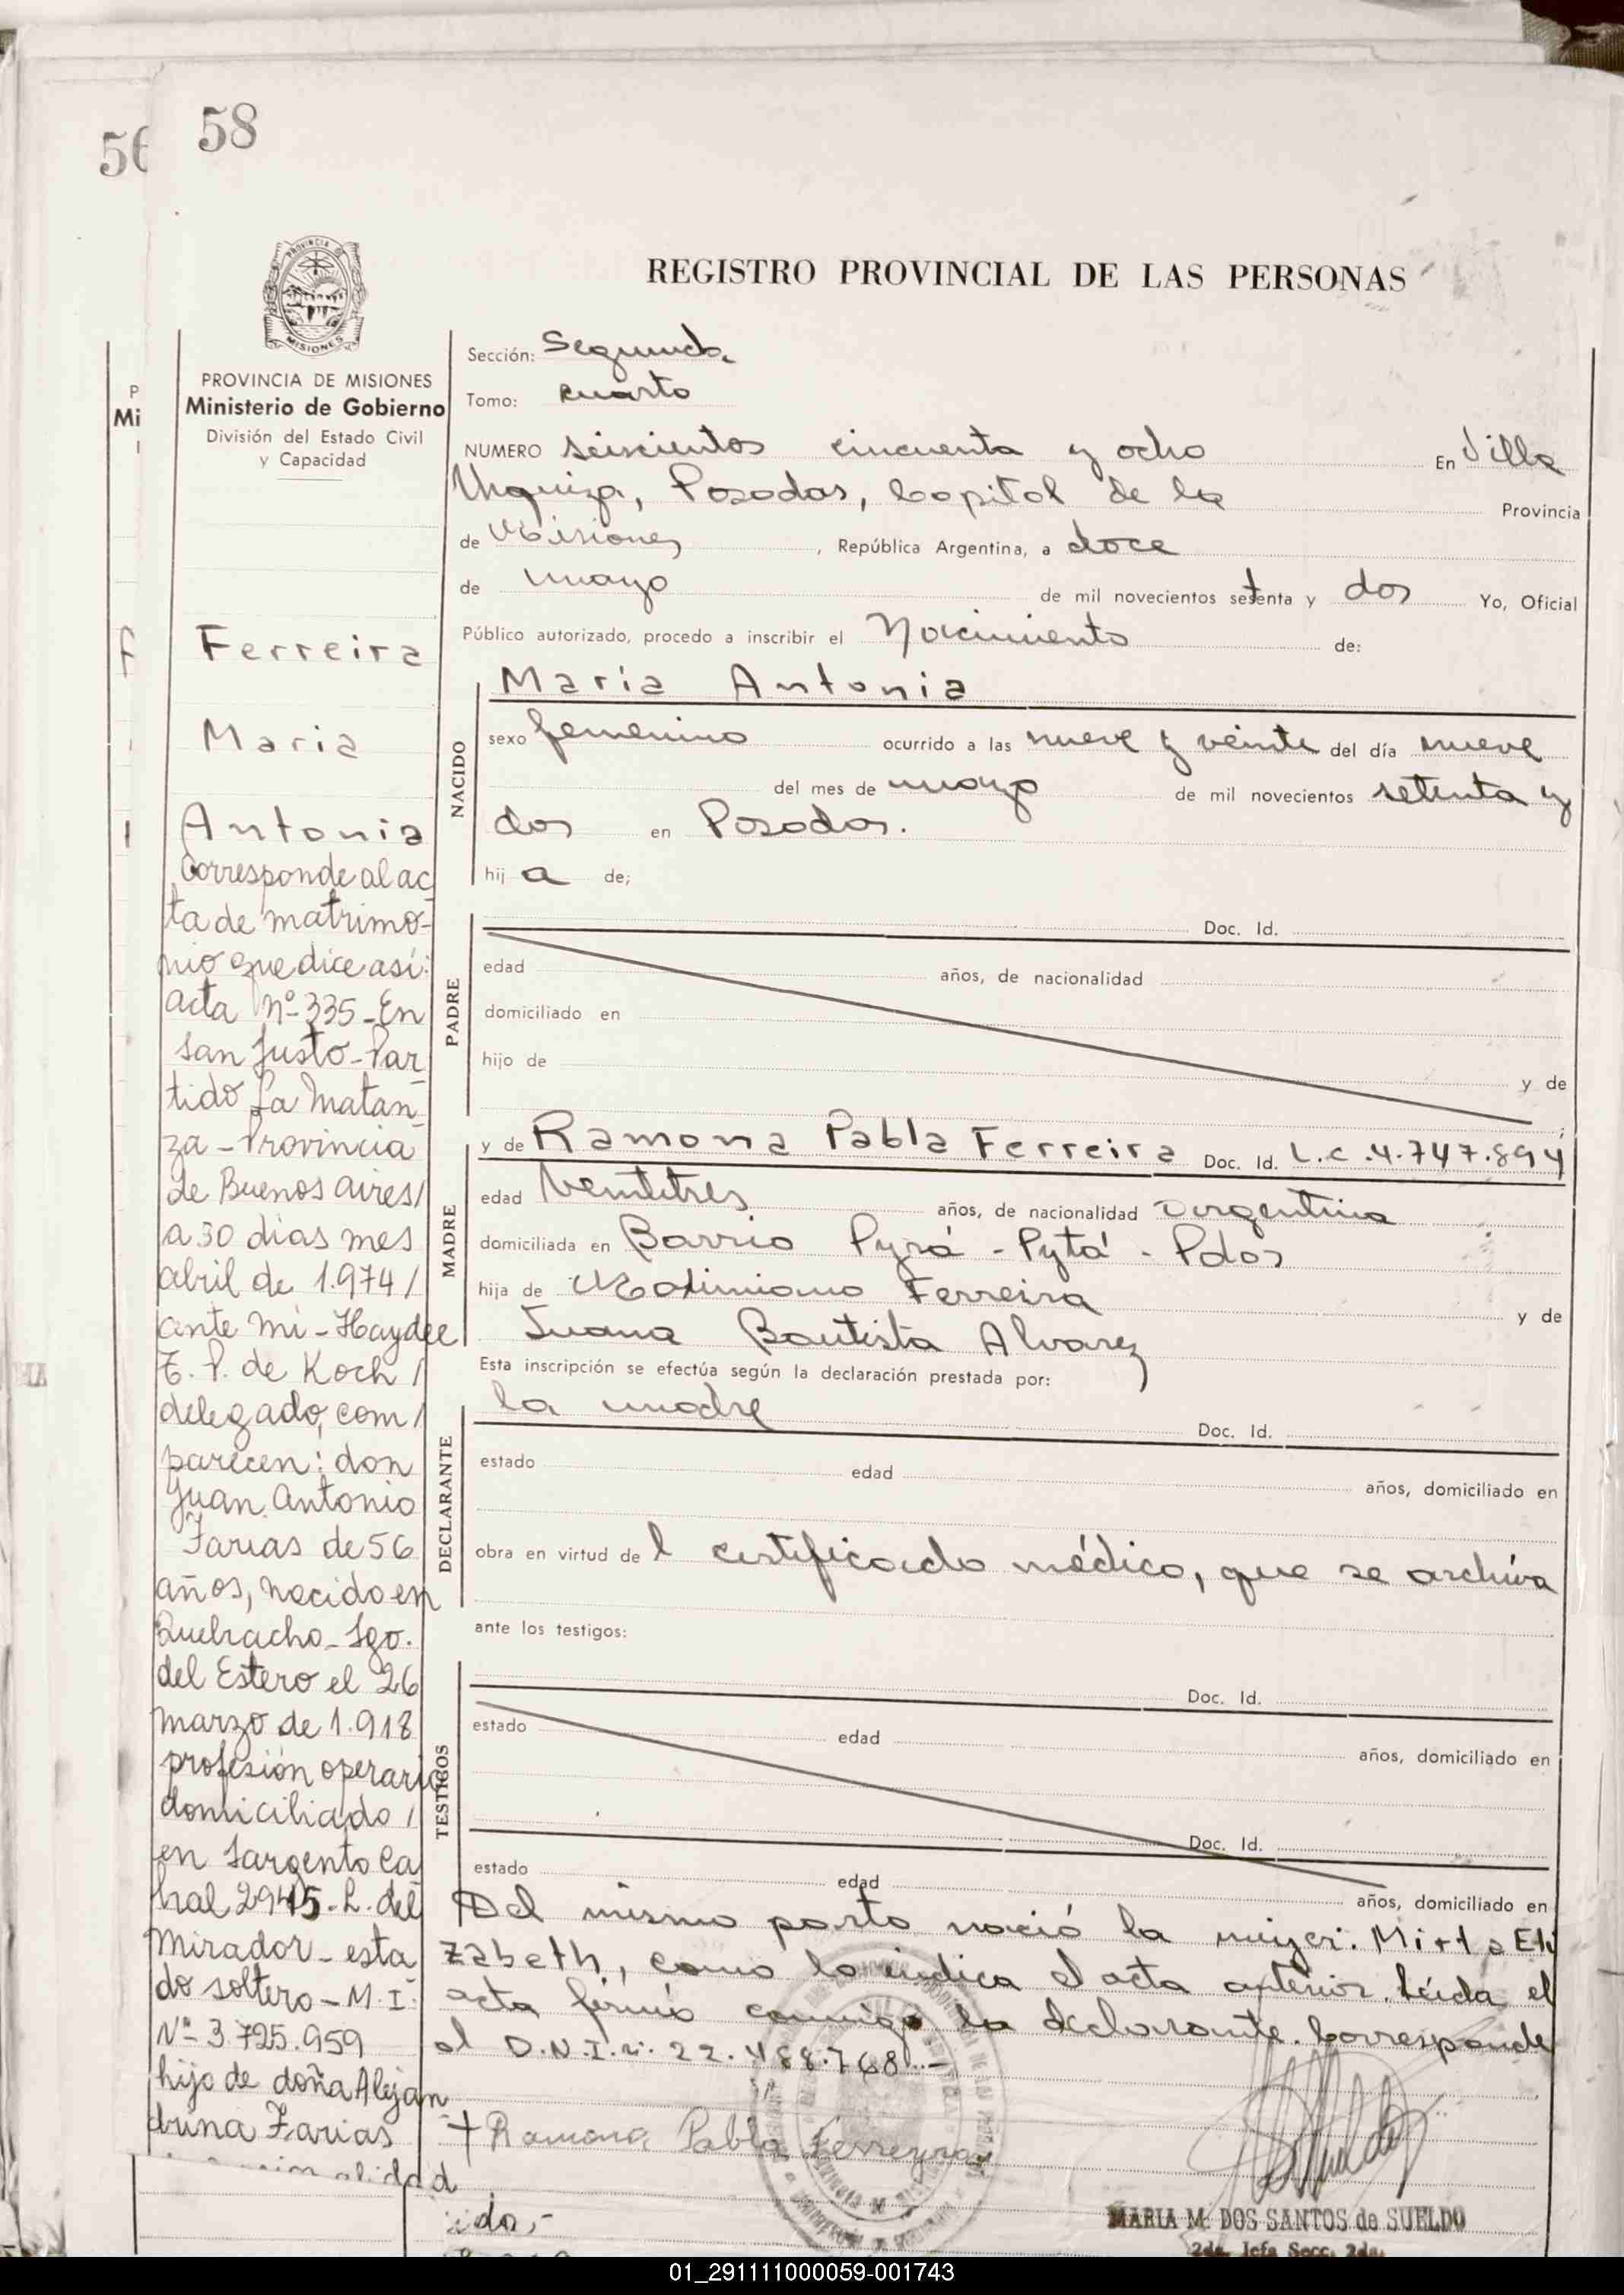 56
58
PROVINCIA DE MISIONES
Ministerio de Gobierno
División del Estado Civil
y Capacidad
P
Mi
Ferreira
Maria
Antonia
Corresponde al ac
ta de matrimo-
nio que dice así:
acta Nº 335 - En
San Justo - Par
tido La Matan
za - Provincia
de Buenos aires/
a 30 dias mes
abril de 1.974/
ante mi - Haydee
T. P. de Koch /
delegado, com/
parecen: don
Juan Antonio
Farias de 56
años, nacido en
Quebracho - Sgo.
del Estero el 26
marzo de 1.918
profesión operario
domiciliado /
en Sargento Ca
bral 2945 - L. del
Mirador - esta
do soltero - M.I.
Nº 3.725.959
hijo de doña Alejan
drina Farias
REGISTRO PROVINCIAL DE LAS PERSONAS
Sección: Segunda
Tomo: cuarto
NUMERO seiscientos cincuenta y ocho En Villa
Urquiza, Posadas, Capital de la Provincia
de Misiones, República Argentina, a doce
de mayo de mil novecientos setenta y dos Yo, Oficial
Público autorizado, procedo a inscribir el Nacimiento de:
NACIDO
Maria Antonia
sexo femenino ocurrido a las nueve y veinte del día nueve
del mes de mayo de mil novecientos setenta y
dos en Posadas.
hij a de;
PADRE
Doc. Id.
edad años, de nacionalidad
domiciliado en
hijo de y de
MADRE
y de Ramona Pabla Ferreira Doc. Id. L.C. 4.747.894
edad veintitres años, de nacionalidad argentina
domiciliada en Barrio Pyrá - Pytá - Pdas
hija de Maximiano Ferreira y de
Juana Bautista Alvarez
Esta inscripción se efectúa según la declaración prestada por:
DECLARANTE
la madre Doc. Id.
estado edad años, domiciliado en
obra en virtud de l certificado médico, que se archiva
ante los testigos:
TESTIGOS
Doc. Id.
estado edad años, domiciliado en
Doc. Id.
estado edad años, domiciliado en
Del mismo parto nació la mujer: Mirta Eli
zabeth, como lo indica el acta anterior. Leida el
acta firmó conmigo la declarante. Corresponde
al D.N.I. n: 22.488.768.-
Ramona Pabla Ferreyra
MARIA M. DOS SANTOS de SUELDO
2da. Jefa Secc. 2da.
01_291111000059-001743